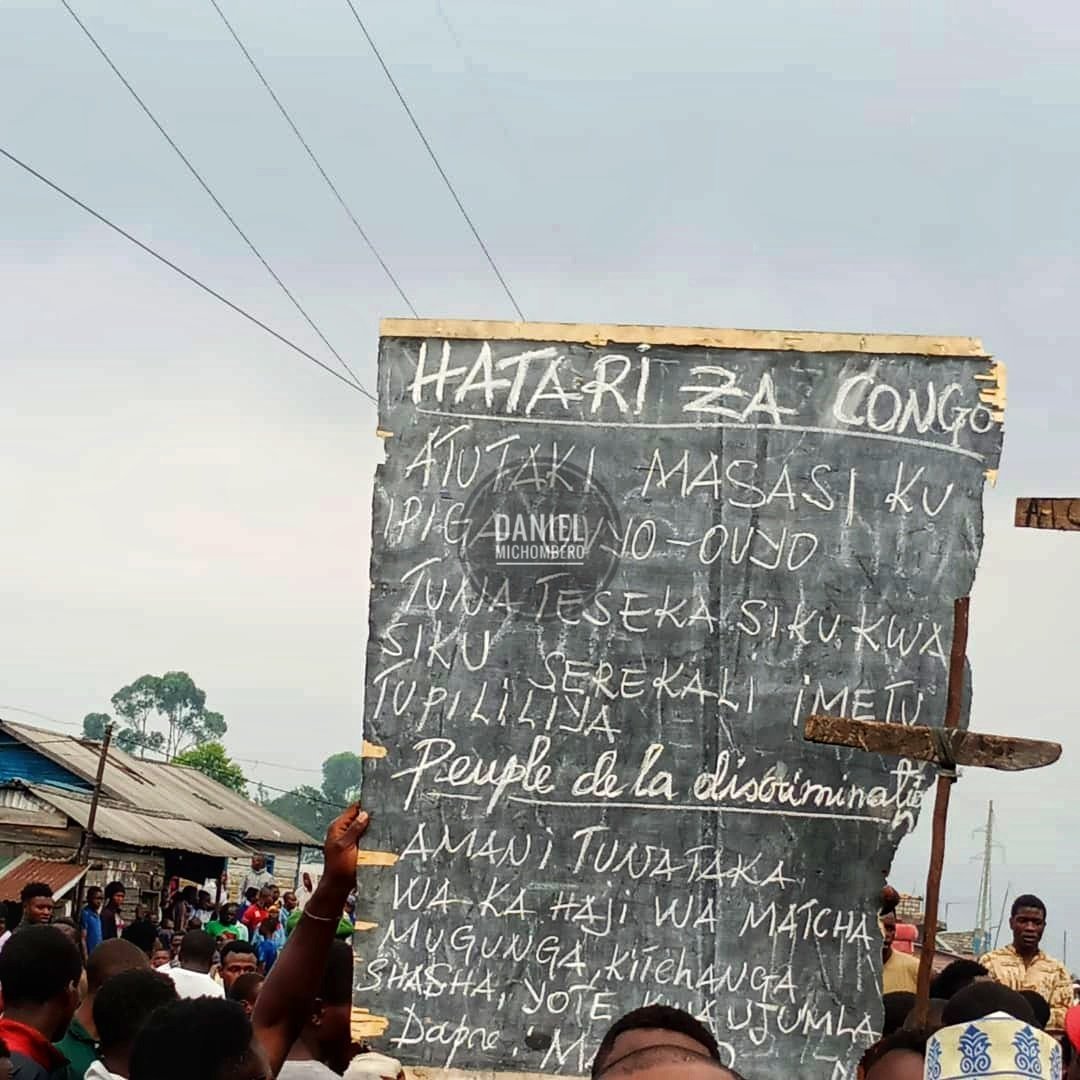 HATARI ZA CONGO
ATUTAKI MASASI KU
IPIGA OVYO-OVYO
TUNATESEKA SIKU KWA
SIKU SEREKALI IMETU
TUPILILIYA
Peuple de la discrimination
AMANI TUNATAKA
WA-KAHAJI WA MATCHA
MUGUNGA, KITCHANGA
SHASHA, YOTE KWAUJUMLA
Dapre :
DANIEL
MICHOMBERO